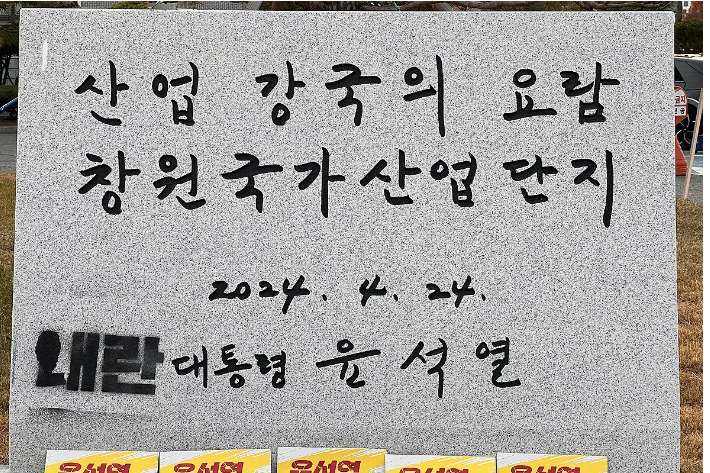 산업 강국의 요람
창원국가산업단지
2024. 4. 24.
내란 대통령 윤석열
윤석열 윤석열 윤석열 윤석열 윤석열